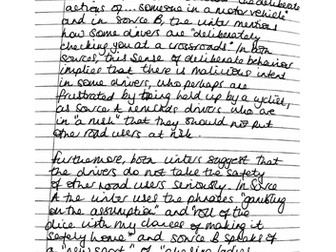 the deliberate
actions of...someone in a motor vehicle"
and in source B, the writer mentions
how some drivers are "deliberately
checking you at a crossroads". In both
sources, this sense of deliberate behaviour
implies that there is malicious intent
in some drivers, who perhaps are
frustrated by being held up by a cyclist,
as source A reminds drivers who are
in "a rush" that they should not put
other road users at risk.
Furthermore, both writers suggest that
the drivers do not take the safety
of other road users seriously. In source
A the writer uses the phrases "gambling
on the assumption" and "roll of the
dice with my chances of making it
safely home" and source B speaks of
a "new sport" of "chasing ladies